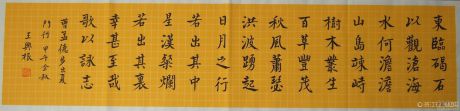 東臨碣石
以觀滄海
水何澹澹
山島竦峙
樹木叢生
百草豐茂
秋風蕭瑟
洪波踴起
日月之行
若出其中
星漢粲爛
若出其裏
幸甚至哉
歌以詠志
曹孟德步出夏
門行 甲午冬月
王興根